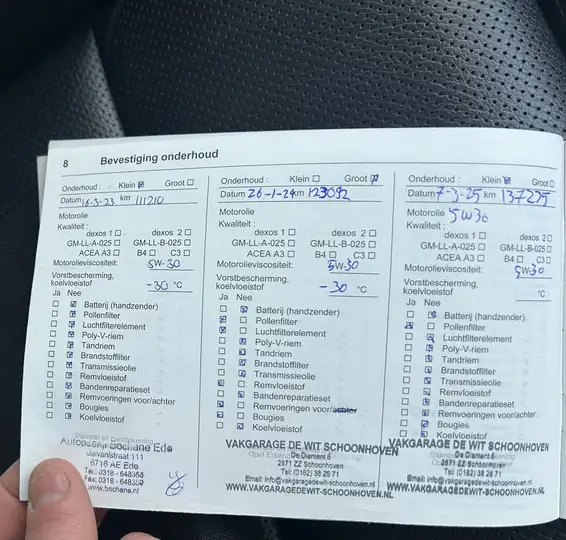 8 Bevestiging onderhoud
Onderhoud : Klein Groot
Datum 16-3-23 km 111210
Motorolie
Kwaliteit :
dexos 1 dexos 2
GM-LL-A-025 GM-LL-B-025
ACEA A3 B4 C3
Motorolieviscositeit: 5W-30
Vorstbescherming.
koelvloeistof -30 °C
Ja Nee
Batterij (handzender)
Pollenfilter
Luchtfilterelement
Poly-V-riem
Tandriem
Brandstoffilter
Transmissieolie
Remvloeistof
Bandenreparatieset
Remvoeringen voor/achter
Bougies
Koelvloeistof
Bochane Ede
6716 AE Ede
Tel.: 0318 - 648355
www.bochane.nl
Onderhoud : Klein Groot
Datum 26-1-24 km 123092
Motorolie
Kwaliteit :
dexos 1 dexos 2
GM-LL-A-025 GM-LL-B-025
ACEA A3 B4 C3
Motorolieviscositeit: 5W-30
Vorstbescherming.
koelvloeistof -30 °C
Ja Nee
Batterij (handzender)
Pollenfilter
Luchtfilterelement
Poly-V-riem
Tandriem
Brandstoffilter
Transmissieolie
Remvloeistof
Bandenreparatieset
Remvoeringen voor/achter
Bougies
Koelvloeistof
VAKGARAGE DE WIT SCHOONHOVEN
De Diamant 5
2871 ZZ Schoonhoven
Tel: (0182) 38 26 71
Email: info@vakgaragedewit-schoonhoven.nl
WWW.VAKGARAGEDEWIT-SCHOONHOVEN.NL
Onderhoud : Klein Groot
Datum 7-3-25 km 137275
Motorolie 5W30
Kwaliteit :
dexos 1 dexos 2
GM-LL-A-025 GM-LL-B-025
ACEA A3 B4 C3
Motorolieviscositeit: 5W-30
Vorstbescherming.
koelvloeistof °C
Ja Nee
Batterij (handzender)
Pollenfilter
Luchtfilterelement
Poly-V-riem
Tandriem
Brandstoffilter
Transmissieolie
Remvloeistof
Bandenreparatieset
Remvoeringen voor/achter
Bougies
Koelvloeistof
VAKGARAGE DE WIT SCHOONHOVEN
De Diamant 5
2871 ZZ Schoonhoven
Tel: (0182) 38 26 71
Email: info@vakgaragedewit-schoonhoven.nl
WWW.VAKGARAGEDEWIT-SCHOONHOVEN.NL